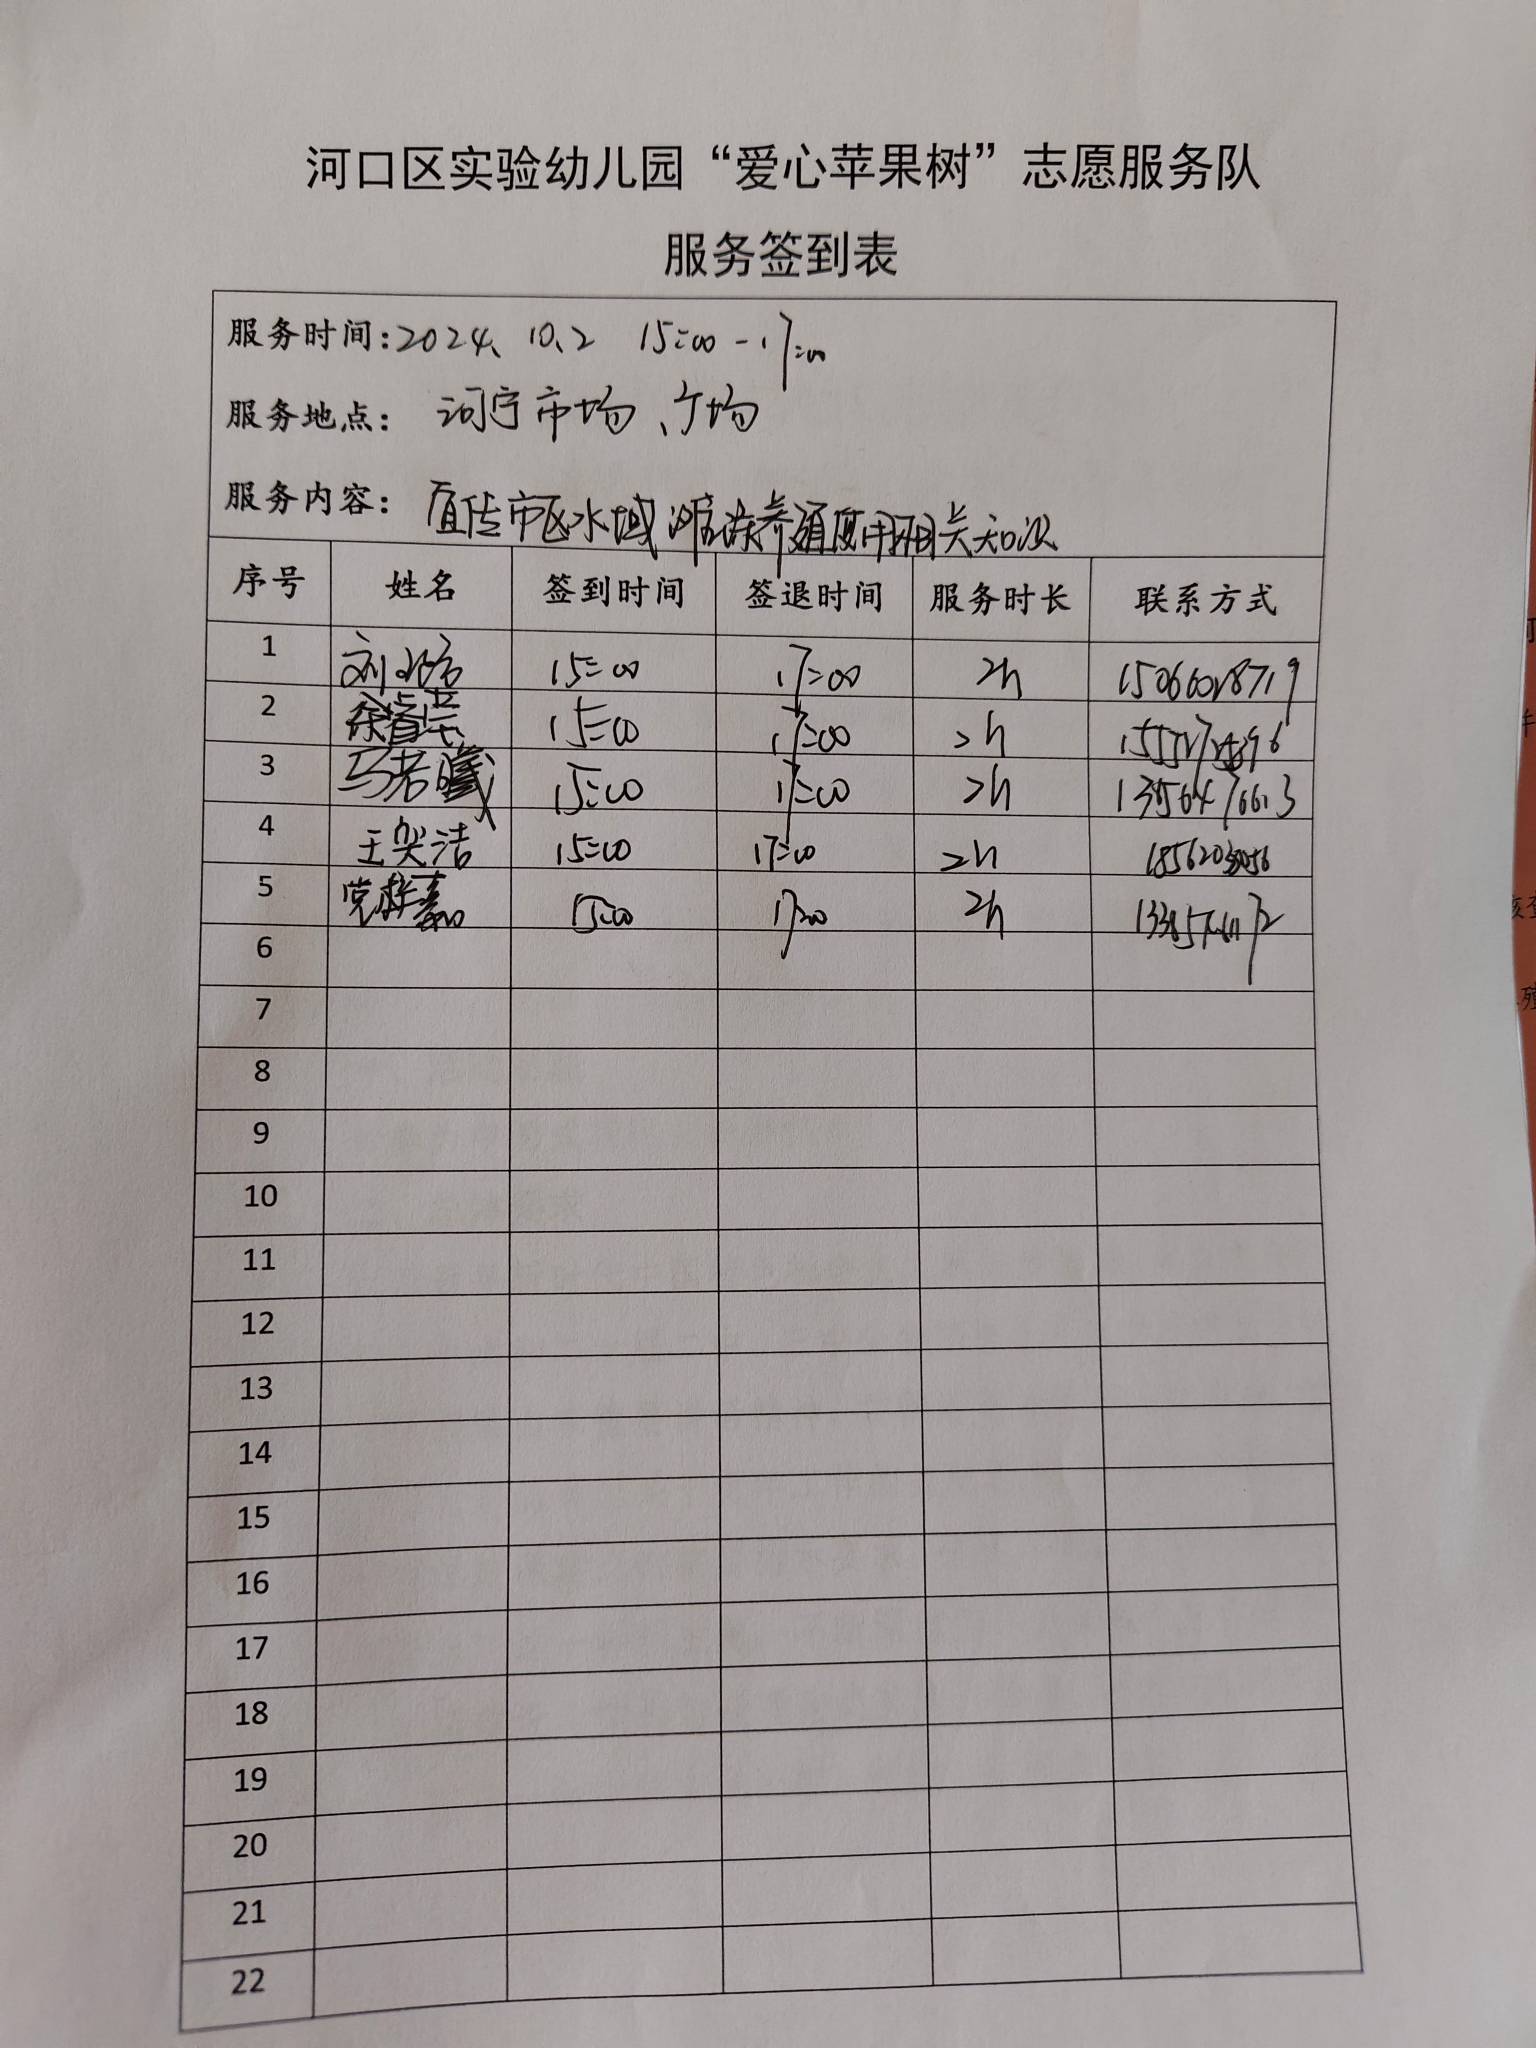 河口区实验幼儿园“爱心苹果树”志愿服务队
服务签到表
服务时间:2024、10、2 15:00-17:00
服务地点: 河宁市场、广场
服务内容: 宣传市区水域滩涂养殖使用相关知识
序号 姓名 签到时间 签退时间 服务时长 联系方式
1 15:00 17:00 2h 15066028719
2 15:00 17:00 2h
3 马若曦 15:00 17:00 2h 13956476613
4 王奕洁 15:00 17:00 2h
5 15:00 17:00 2h
6
7
8
9
10
11
12
13
14
15
16
17
18
19
20
21
22